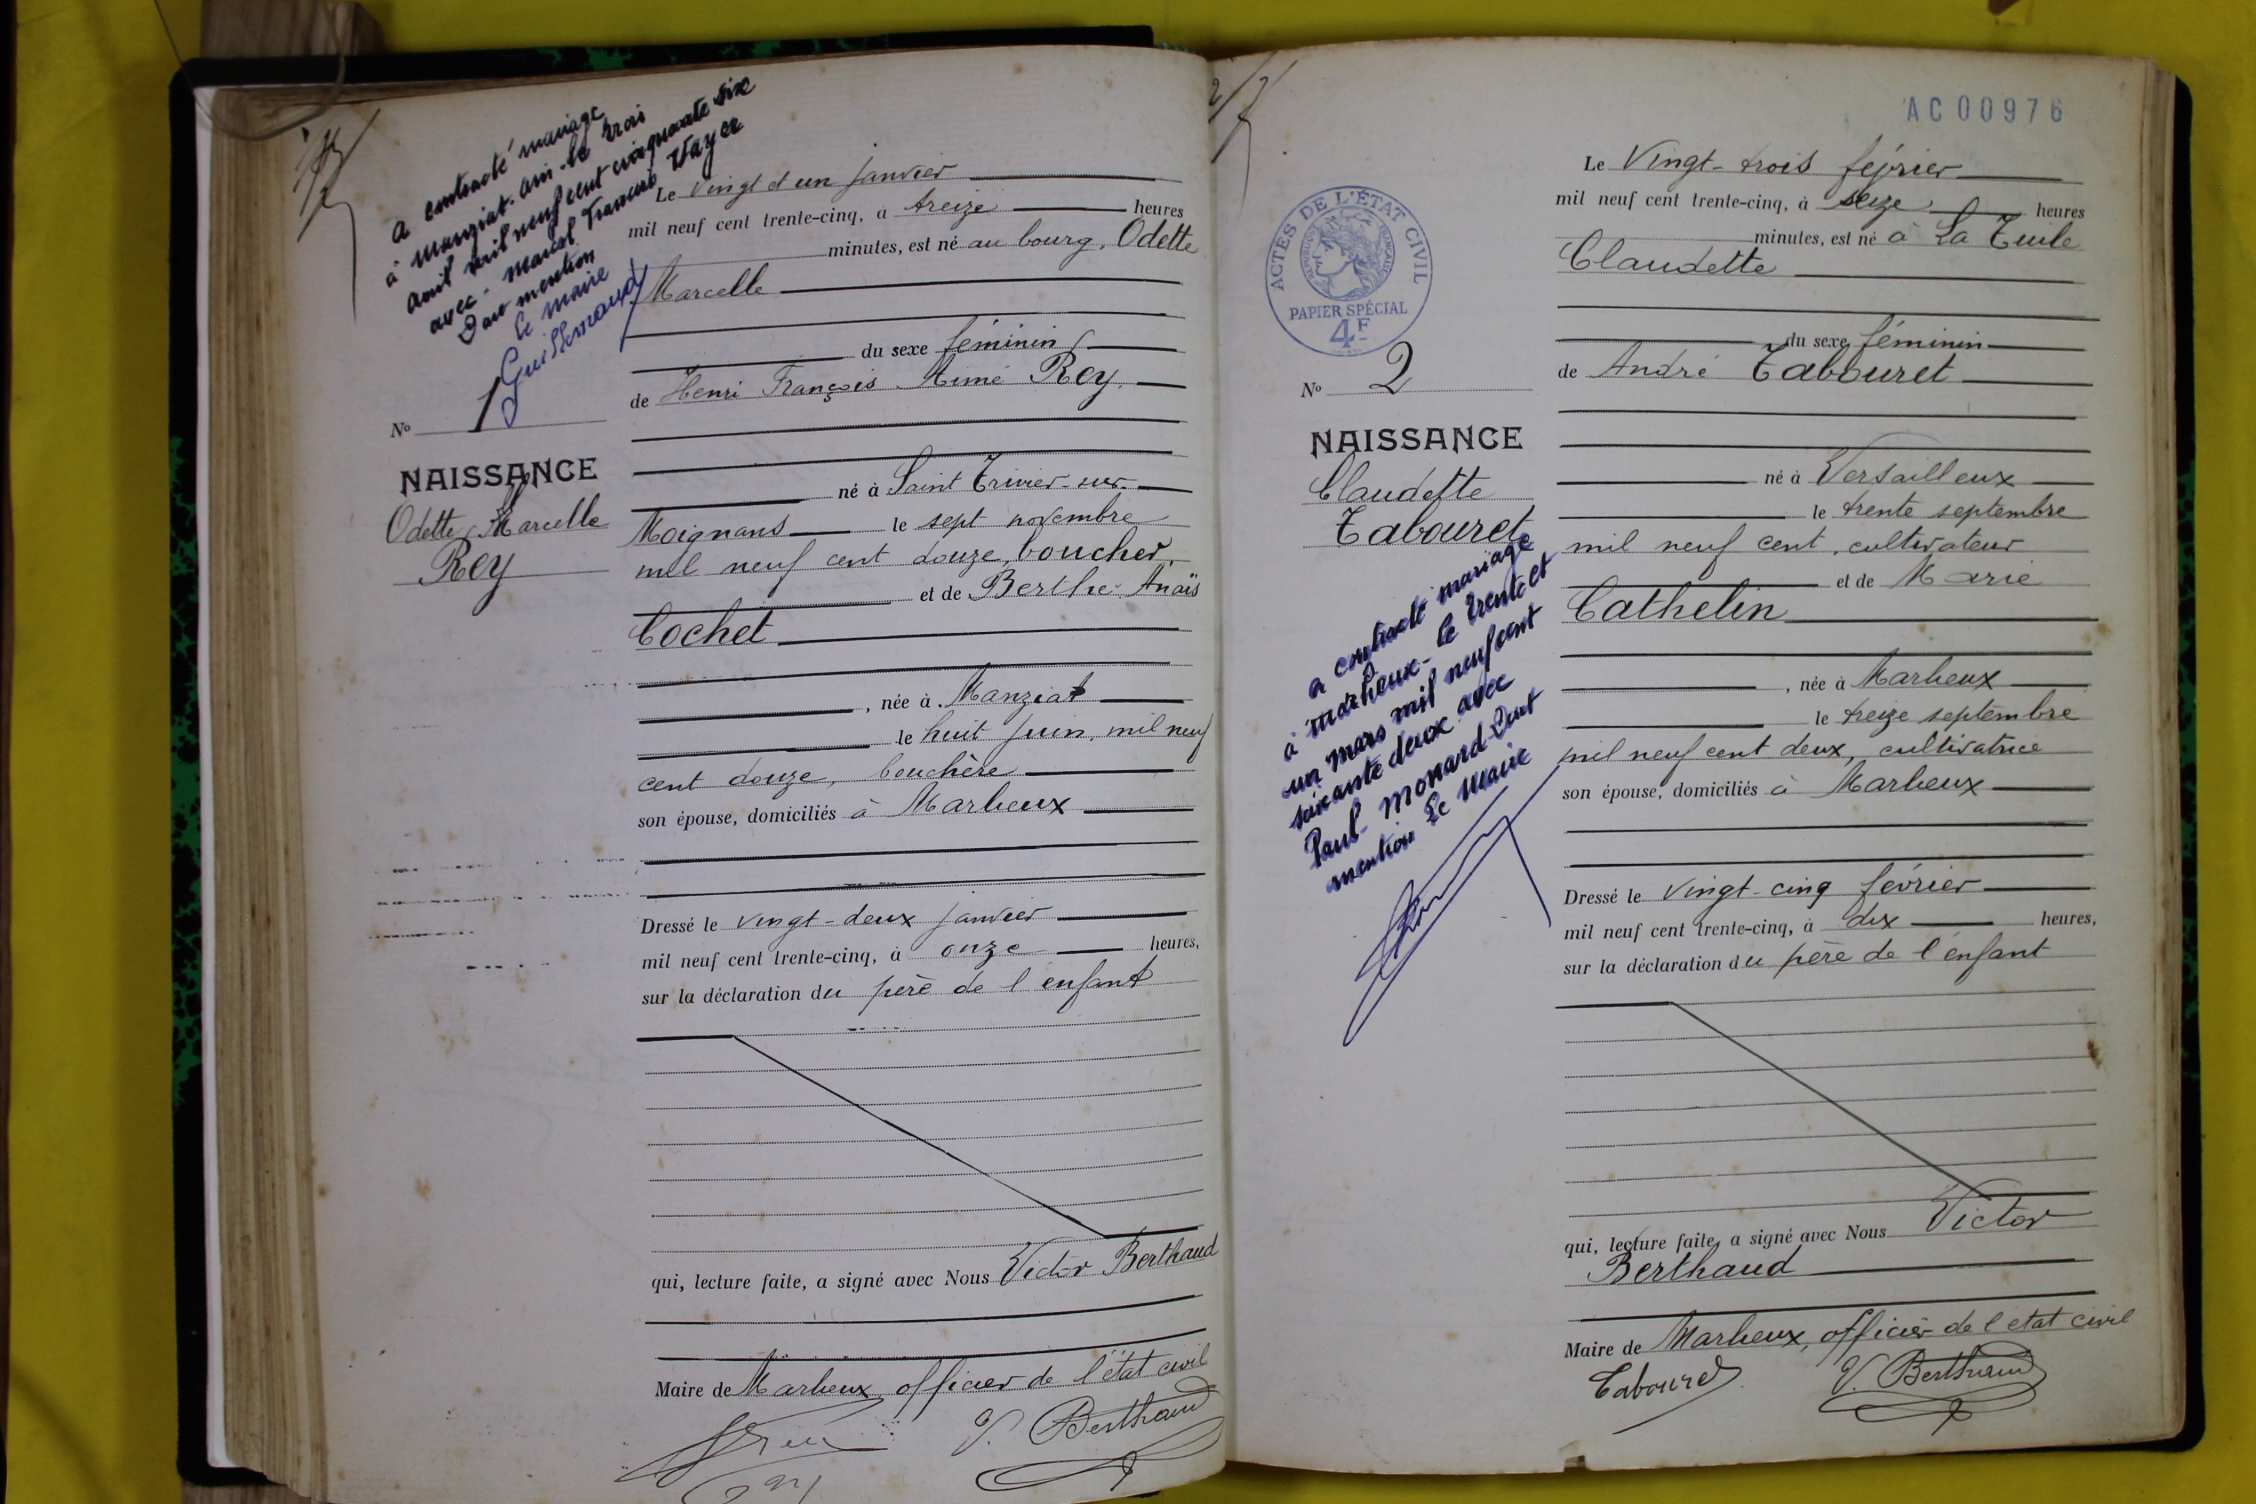 a contracté mariage
à Manziat. Ain. le trois
avril mil neuf cent cinquante six
avec. Marcel François Vayer
Dont mention
Le Maire
Guillemaud
No 1
NAISSANCE
Odette, Marcelle
Rey
Le vingt et un janvier
mil neuf cent trente-cinq, à treize heures
minutes, est né au bourg, Odette
Marcelle
du sexe féminin
de Henri François Aimé Rey
né à Saint Trivier-sur-
Moignans le sept novembre
mil neuf cent douze, boucher,
et de Berthe Anaïs
Cochet
, née à Manziat
le huit juin, mil neuf
cent douze, bouchère
son épouse, domiciliés à Marlieux
Dressé le vingt-deux janvier
mil neuf cent trente-cinq, à onze heures,
sur la déclaration du père de l'enfant
qui, lecture faite, a signé avec Nous Victor Berthaud
Maire de Marlieux, officier de l'état civil
V. Berthaud
AC 00976
ACTES DE L'ÉTAT CIVIL
RÉPUBLIQUE FRANÇAISE
PAPIER SPÉCIAL
4F
No 2
NAISSANCE
Claudette
Tabouret
a contracté mariage
à Marlieux - le trente et
un mars mil neuf cent
soixante deux avec
Paul Monard Dont
mention Le Maire
Le Vingt-trois février
mil neuf cent trente-cinq, à seize heures
minutes, est né à La Tuile
Claudette
du sexe féminin
de André Tabouret
né à Versailleux
le trente septembre
mil neuf cent, cultivateur
et de Marie
Cathelin
, née à Marlieux
le treize septembre
mil neuf cent deux, cultivatrice
son épouse, domiciliés à Marlieux
Dressé le vingt-cinq février
mil neuf cent trente-cinq, à dix heures,
sur la déclaration du père de l'enfant
qui, lecture faite, a signé avec Nous Victor
Berthaud
Maire de Marlieux, officier de l'état civil
Tabouret V. Berthaud